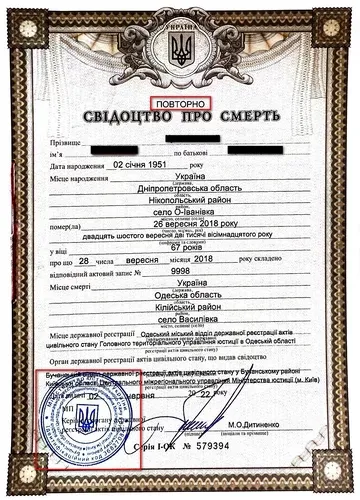 УКРАЇНА
ПОВТОРНО
СВІДОЦТВО ПРО СМЕРТЬ
Прізвище
ім'я по батькові
Дата народження 02 січня 1951 року
Місце народження Україна
(держава,
Дніпропетровська область
Нікопольський район
село О-Іванівка
помер(ла) 26 вересня 2018 року
двадцять шостого вересня дві тисячі вісімнадцятого року
у віці 67 років
про що 28 числа вересня місяця 2018 року складено
відповідний актовий запис № 9998
Місце смерті Україна
(держава,
Одеська область
Кілійський район
село Василівка
Місце державної реєстрації Одеський міський відділ державної реєстрації актів
цивільного стану Головного територіального управління юстиції в Одеській області
Орган державної реєстрації актів цивільного стану, що видав свідоцтво
Бучанський відділ державної реєстрації актів цивільного стану у Бучанському районі
Київської області Центрального міжрегіонального управління Міністерства юстиції (м. Київ)
Дата видачі 02 червня 2022 року
МП
Керівник органу державної
реєстрації актів цивільного стану М.О.Дитиненко
Серія І-ОК № 579394